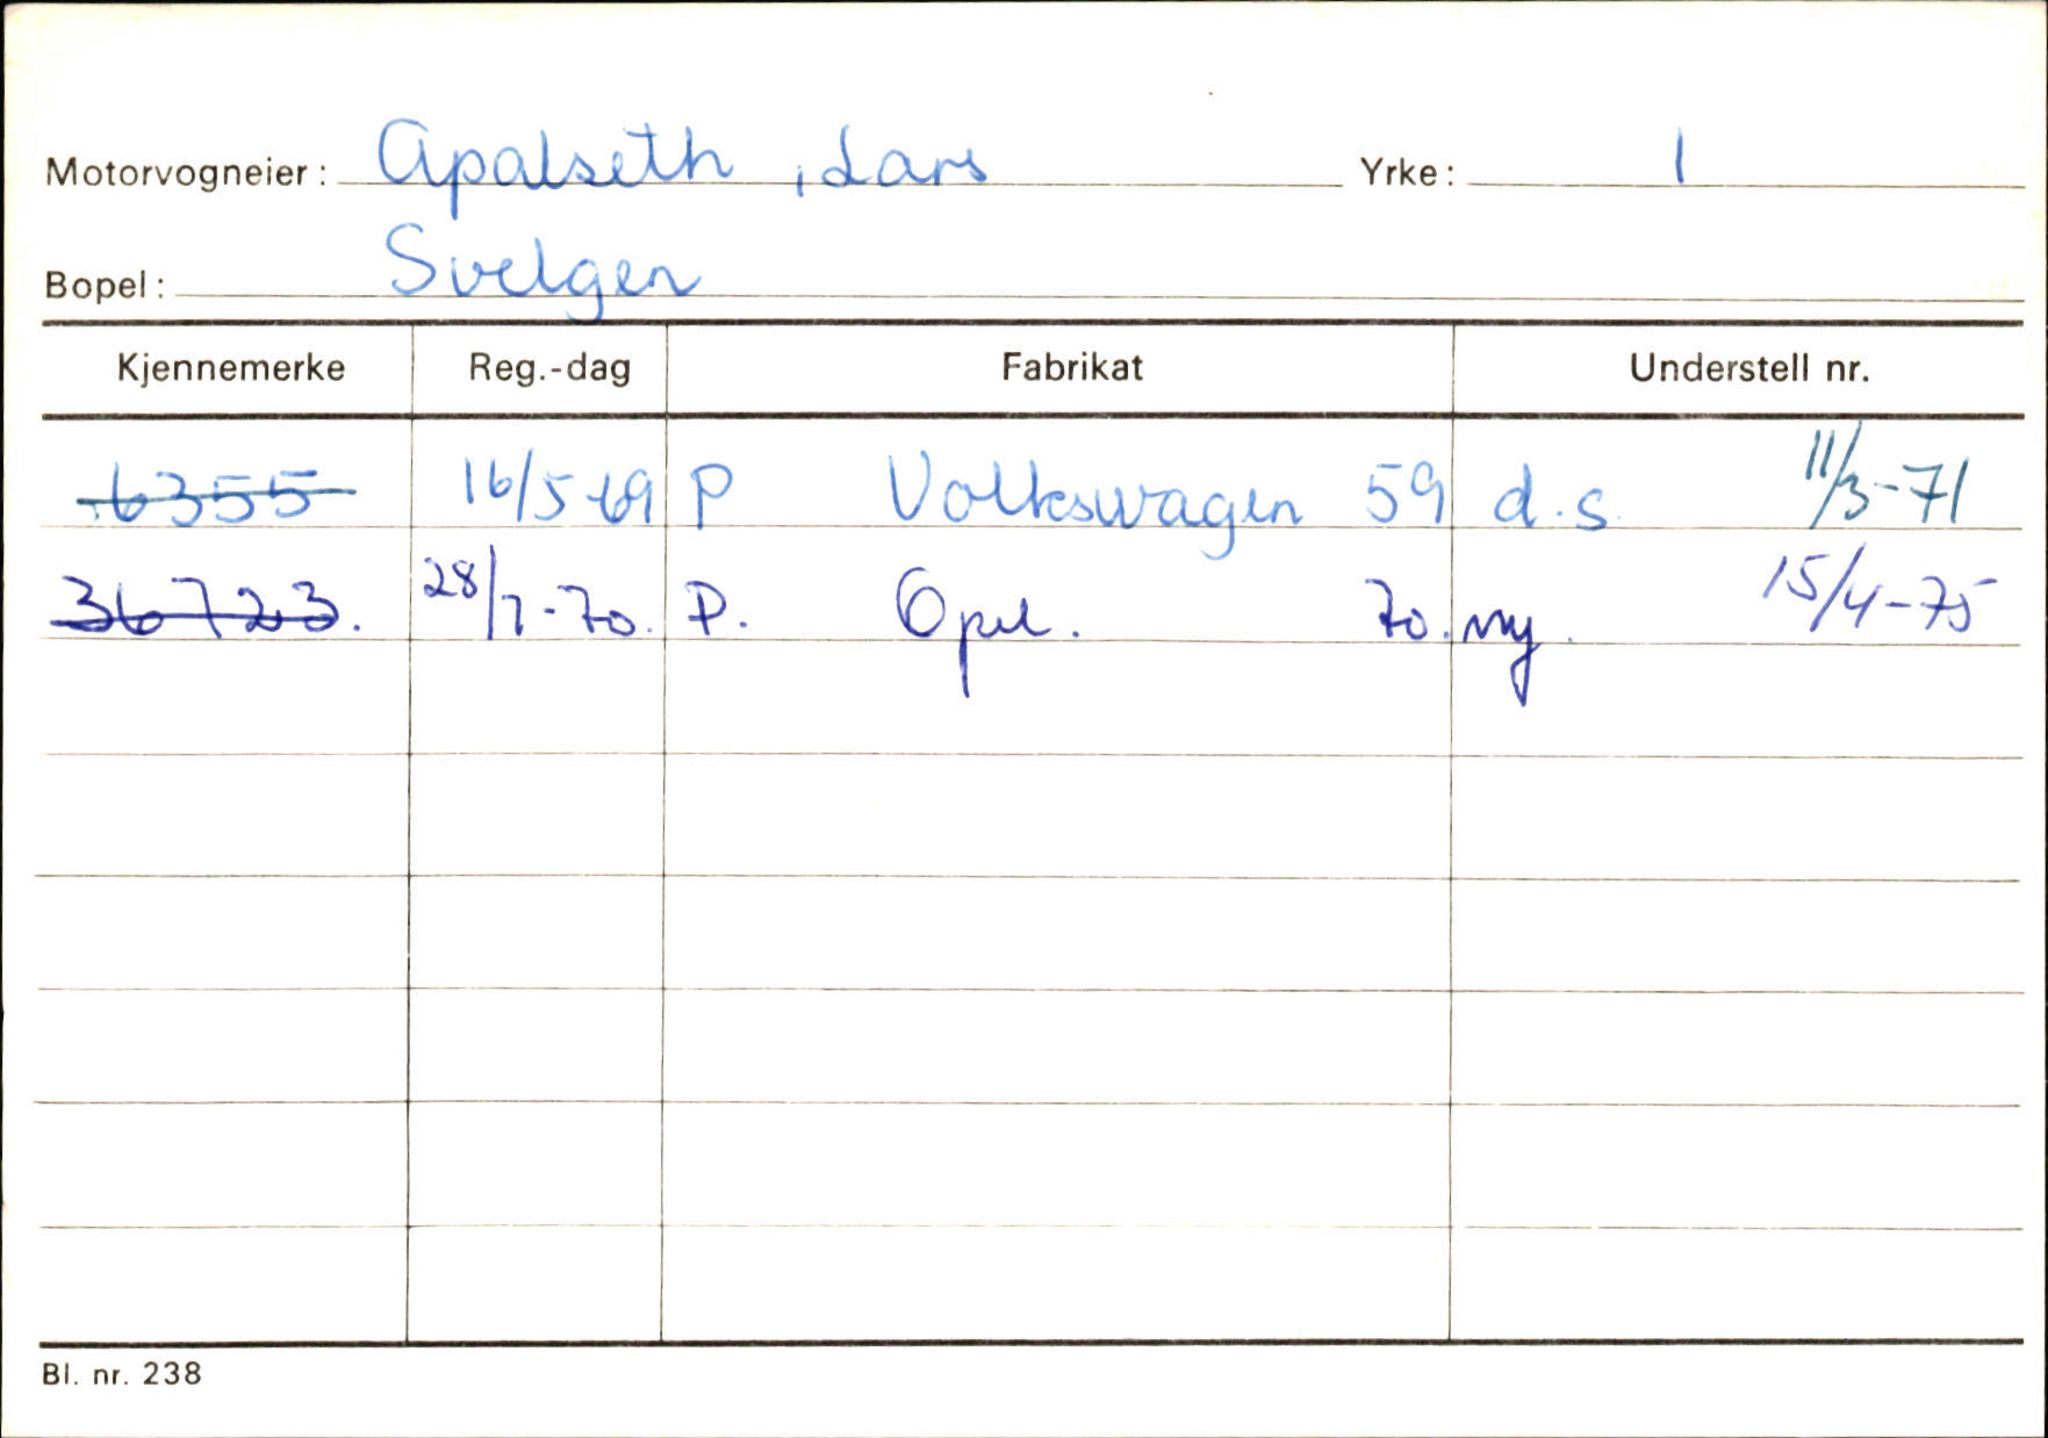 Motorvogneier: Apalseth, Lars Yrke: 1
Bopel: Svelgen
Kjennemerke Reg.-dag Fabrikat Understell nr.
6355 16/5-69 P Volkswagen 59 d.s. 11/3-71
36723. 28/7-70. P. Opel. 70. ny. 15/4-75
Bl. nr. 238